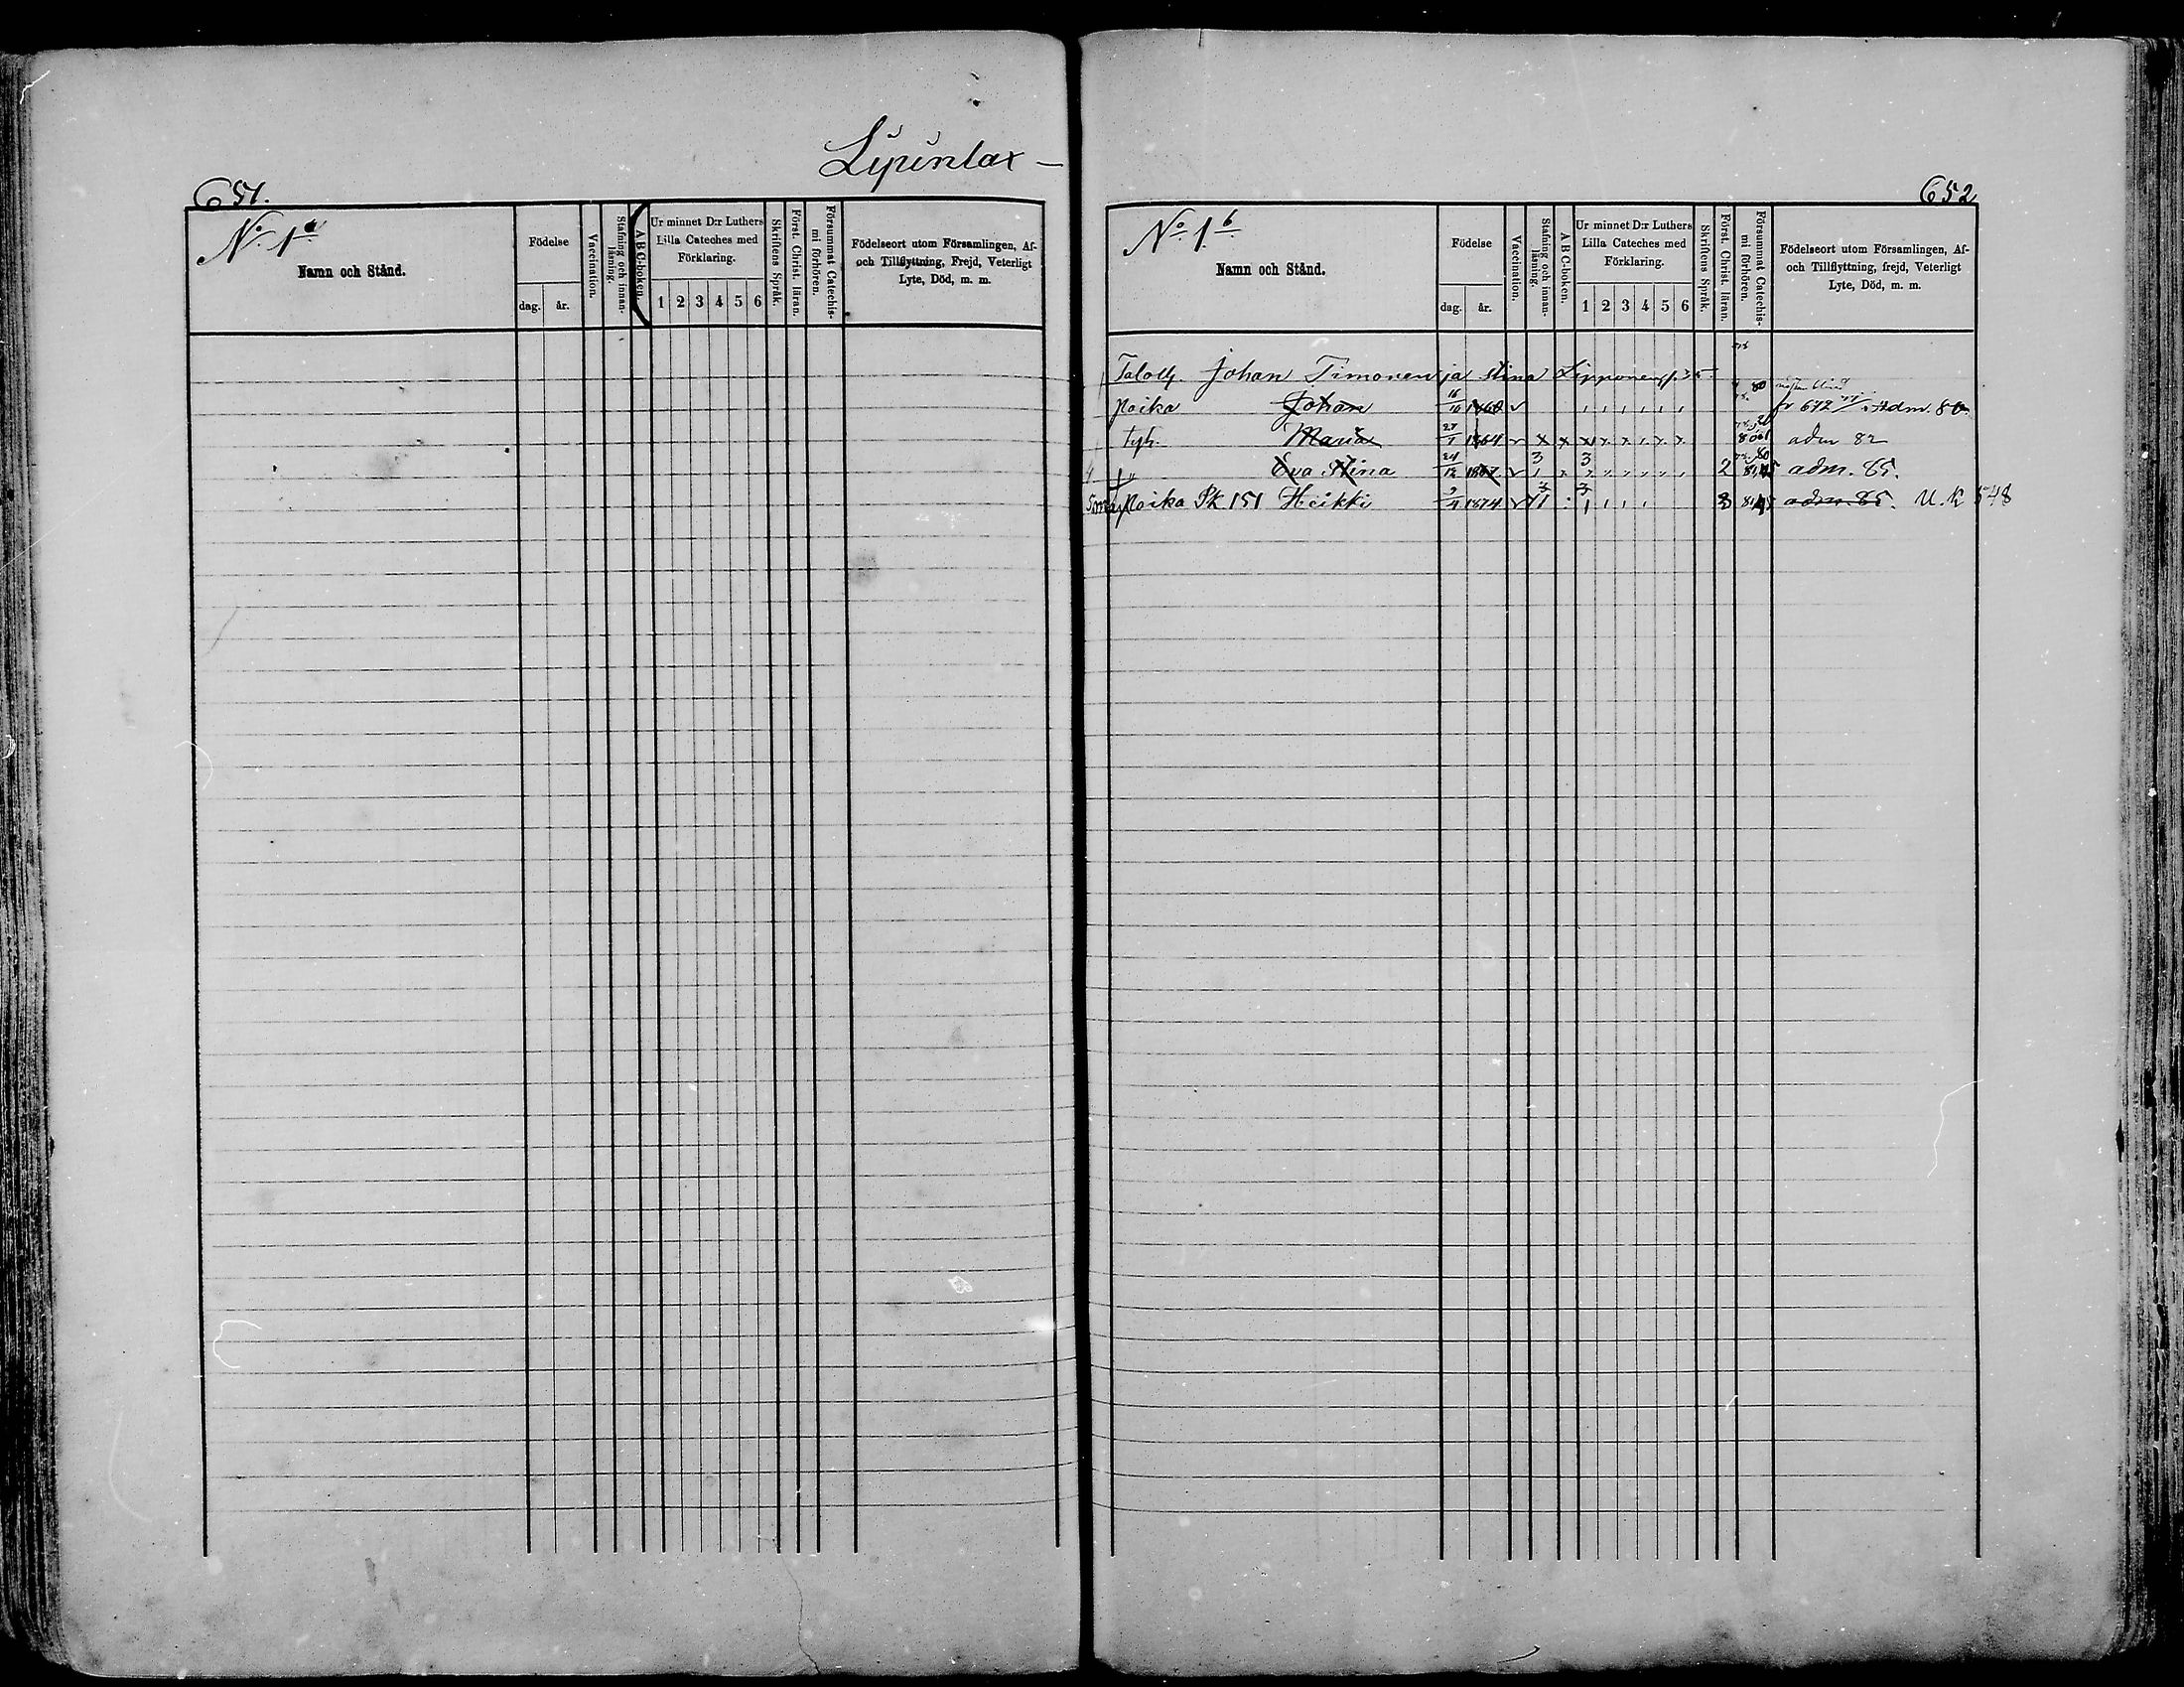 Lipinlax —
651.
No. 1a
Namn och Stånd.
Födelse
dag. år.
Vaccination.
Stafning och innanläsning.
A B C-boken.
Ur minnet D:r Luthers Lilla Cateches med Förklaring.
1 2 3 4 5 6
Skriftens Språk.
Först. Christ. läran.
Försummat Catechismi förhören.
Födelseort utom Församlingen, Af- och Tillflyttning, Frejd, Veterligt Lyte, Död, m. m.
652
No. 1b
Namn och Stånd.
Födelse
dag. år.
Vaccination.
Stafning och innanläsning.
A B C-boken.
Ur minnet D:r Luthers Lilla Cateches med Förklaring.
1 2 3 4 5 6
Skriftens Språk.
Först. Christ. läran.
Försummat Catechismi förhören.
Födelseort utom Församlingen, Af- och Tillflyttning, frejd, Veterligt Lyte, Död, m. m.
Johan Timonen ja Stina Lipponen
Poika Johan 16/10 1860 80 fr 672 Adm. 80
tyt. Maria 1864 adm 82
" Eva Stina 24/12 1867 3 3 2 adm. 85.
Poika Pk 151 Heikki 1874 3 3 3 adm. 85. U. k 548